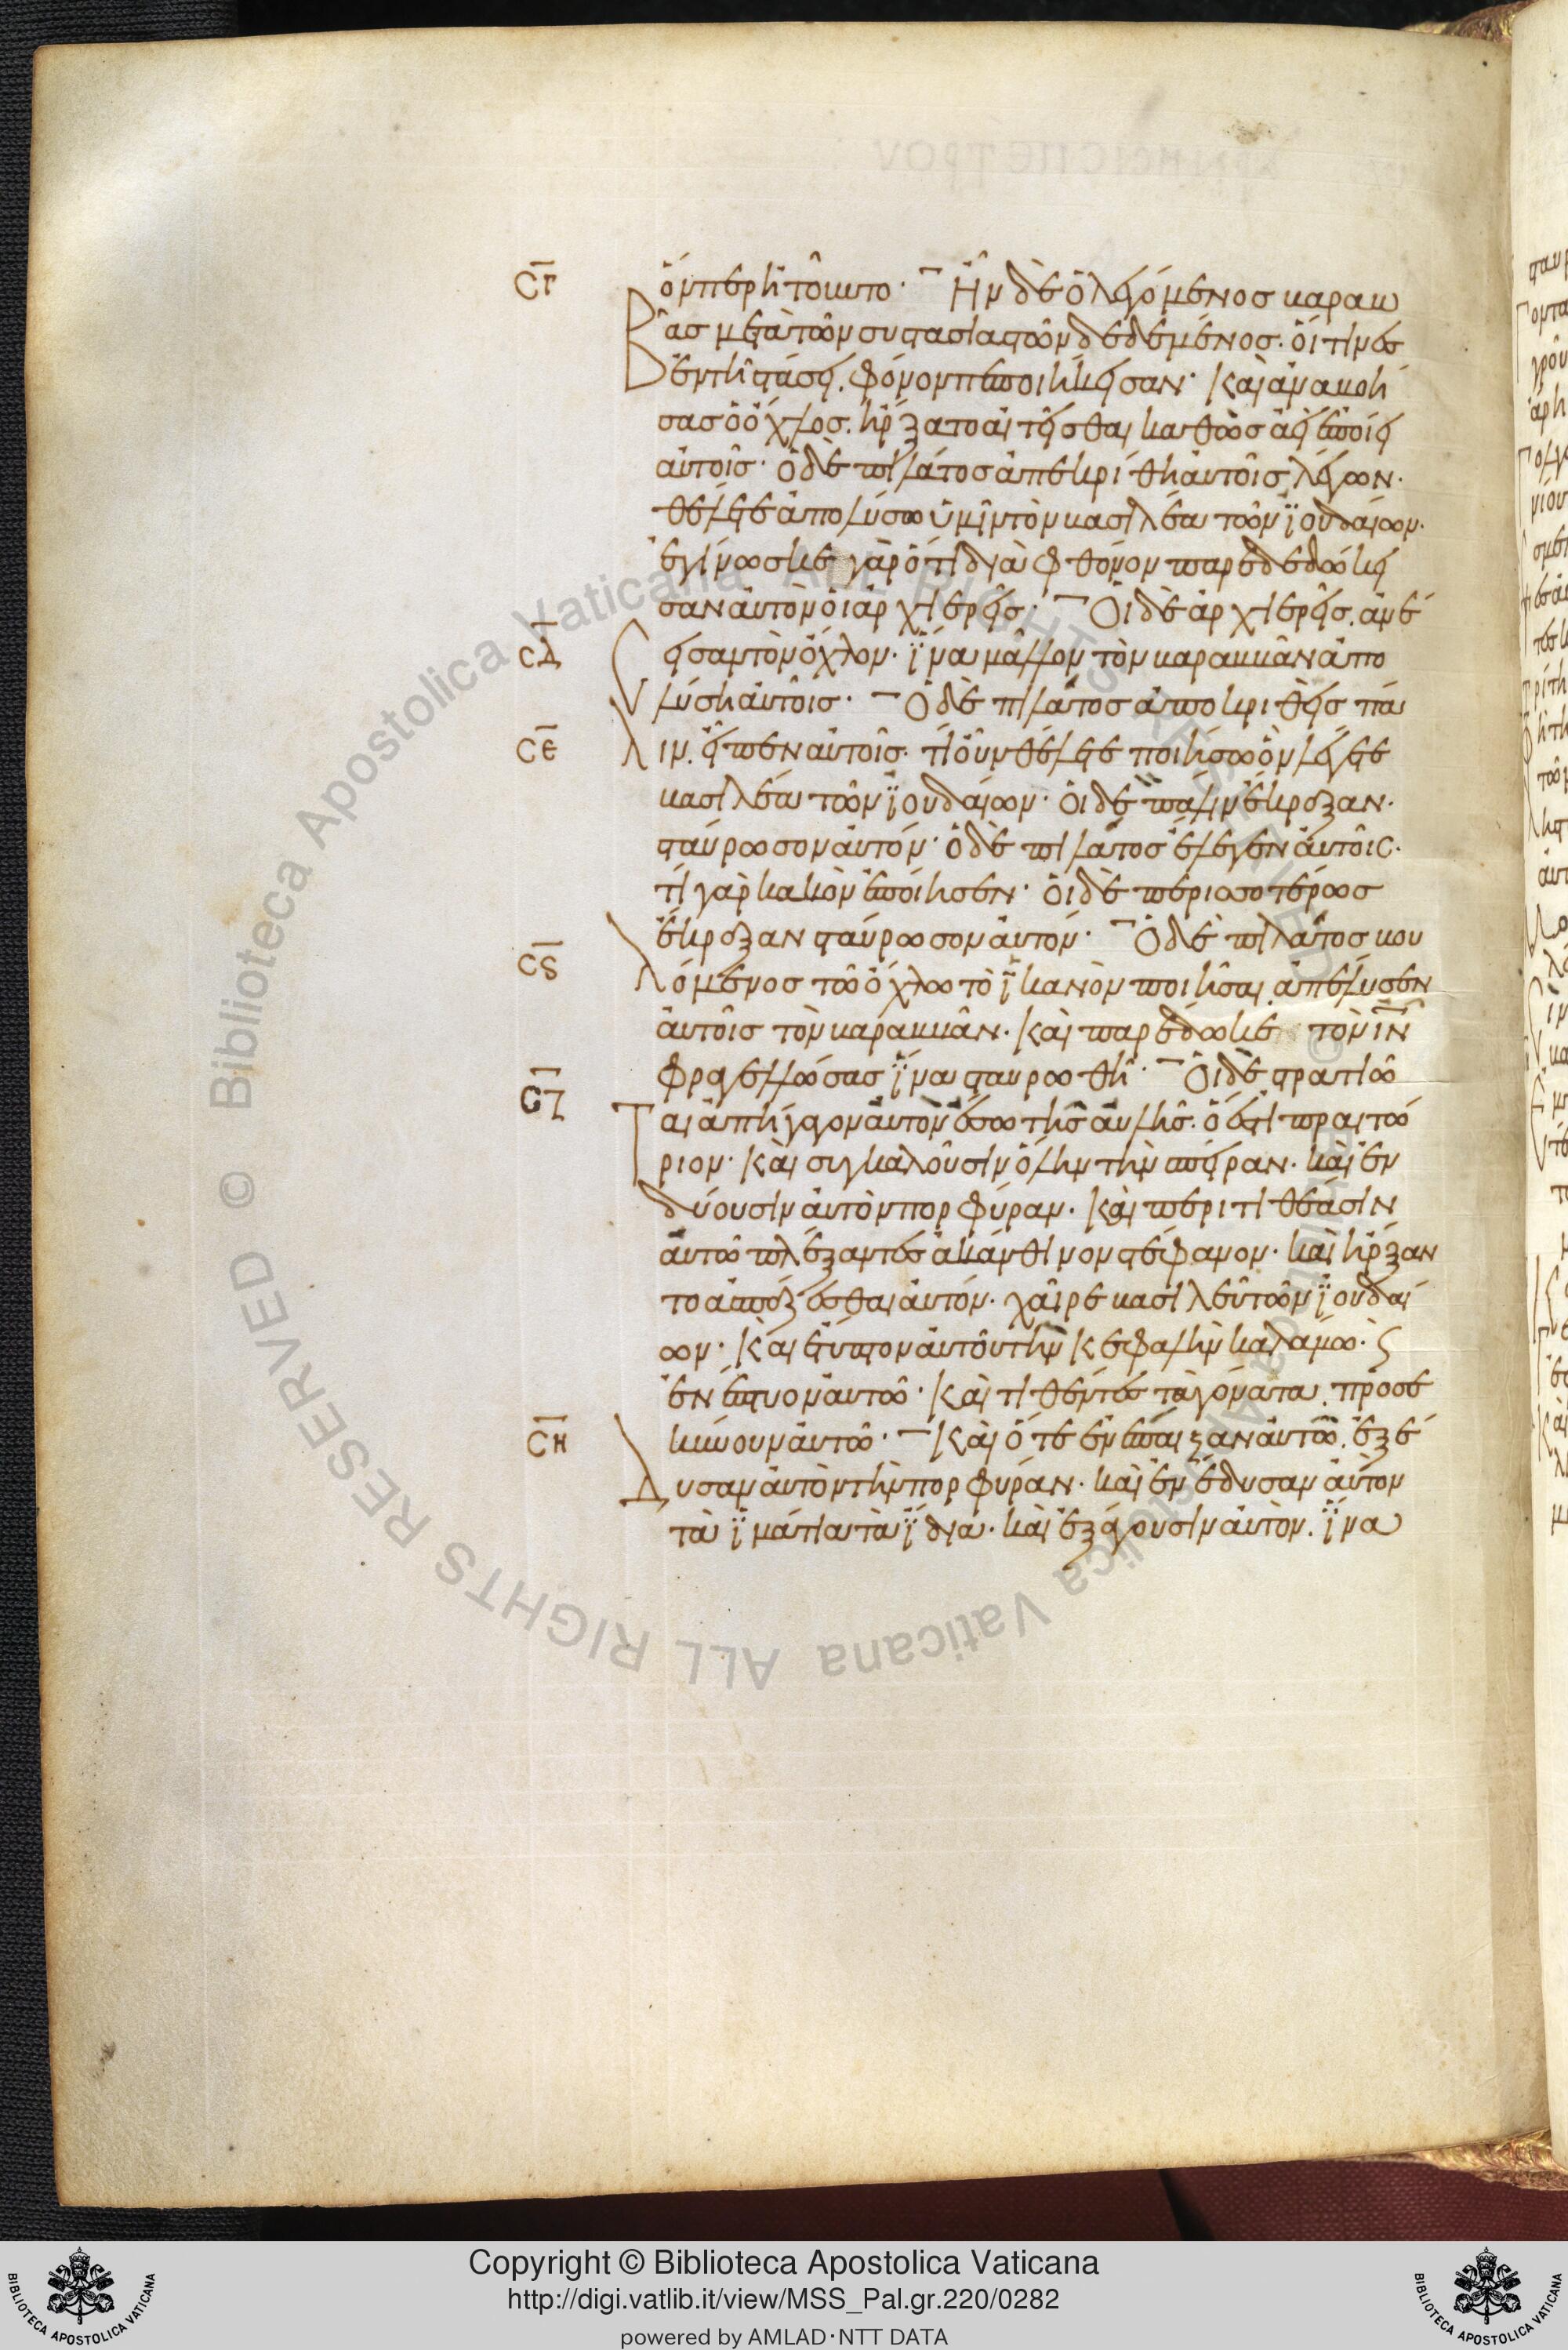 ϹΓ ὅνπερ ἠτοῦντο· Ἦν δὲ ὁ λεγόμενος βαραβ
βᾶς μετὰ τῶν συστασιαστῶν δεδεμένος. οἵτινες
ἐν τῆ στάσει. φόνον πεποιήκεισαν· Καὶ ἀναβοή
σας ὁ ὄχλος. ἤρξατο αἰτεῖσθαι καθὼς ἀεὶ ἐποίει
αὐτοῖς· Ὁ δὲ πιλάτος ἀπεκρίθη αὐτοῖς λέγων.
θέλετε ἀπολύσω ὑμῖν τὸν βασιλέα τῶν ϊουδαίων.
ἐγίνωσκε γὰρ ὅτι διὰ φθόνον παρεδεδώκει
σαν αὐτὸν οἱ ἀρχιερεῖς· Οἱ δὲ ἀρχιερεῖς. ἀνέ
ϹΔ σεισαν τὸν ὄχλον. ϊνα μᾶλλον τὸν βαραββᾶν ἀπο
λύση αὐτοῖς· Ὁ δὲ πιλάτος ἀποκριθεὶς πά
ϹΕ λιν. εἶπεν αὐτοῖς. τί οὖν θέλετε ποιήσω ὃν λέγετε
βασιλέα τῶν ϊουδαίων· οἱ δὲ πάλιν ἔκραξαν.
σταύρωσον αὐτόν· ὁ δὲ πιλάτος ἔλεγεν αὐτοῖς.
τί γὰρ κακὸν ἐποίησεν· οἱ δὲ περισσοτέρως
ἔκραξαν σταύρωσον αὐτόν· Ὁ δὲ πιλάτος βου
ϹϚ λόμενος τῶ ὄχλω τὸ ϊκανὸν ποιῆσαι. ἀπέλυσεν
αὐτοῖς τὸν βαραββᾶν. Καὶ παρέδωκε τὸν ΙΝ
φραγελλώσας ϊνα σταυρωθῆ· Οἱ δὲ στρατιῶ
ϹΖ ται ἀπήγαγον αὐτὸν ἔσω τῆς αὐλῆς. ὅ ἐστι πραιτώ
ριον· Καὶ συγκαλοῦσιν ὅλην τὴν σπεῖραν. καὶ ἐν
δύουσιν αὐτὸν πορφύραν. Καὶ περιτιθέασιν
αὐτῶ πλέξαντες ἀκάνθινον στέφανον. καὶ ἤρξαν
το ἀσπάζεσθαι αὐτόν. χαῖρε βασιλεῦ τῶν ϊουδαί
ων· Καὶ ἔτυπτον αὐτοῦ τὴν κεφαλὴν καλάμω. ϛ
ἐνέπτυον αὐτῶ· Καὶ τιθέντες τὰ γόνατα. προσε
ϹΗ κύνουν αὐτῶ· Καὶ ὅτε ἐνέπαιξαν αὐτῶ. ἐξέ
δυσαν αὐτὸν τὴν πορφύραν. καὶ ἐνέδυσαν αὐτὸν
τὰ ϊμάτια τὰ ϊδια. καὶ ἐξάγουσιν αὐτὸν. ϊνα
Copyright © Biblioteca Apostolica Vaticana
http://digi.vatlib.it/view/MSS_Pal.gr.220/0282
powered by AMLAD·NTT DATA
BIBLIOTECA APOSTOLICA VATICANA
BIBLIOTECA APOSTOLICA VATICANA
© Biblioteca Apostolica Vaticana ALL RIGHTS RESERVED
© Biblioteca Apostolica Vaticana ALL RIGHTS RESERVED